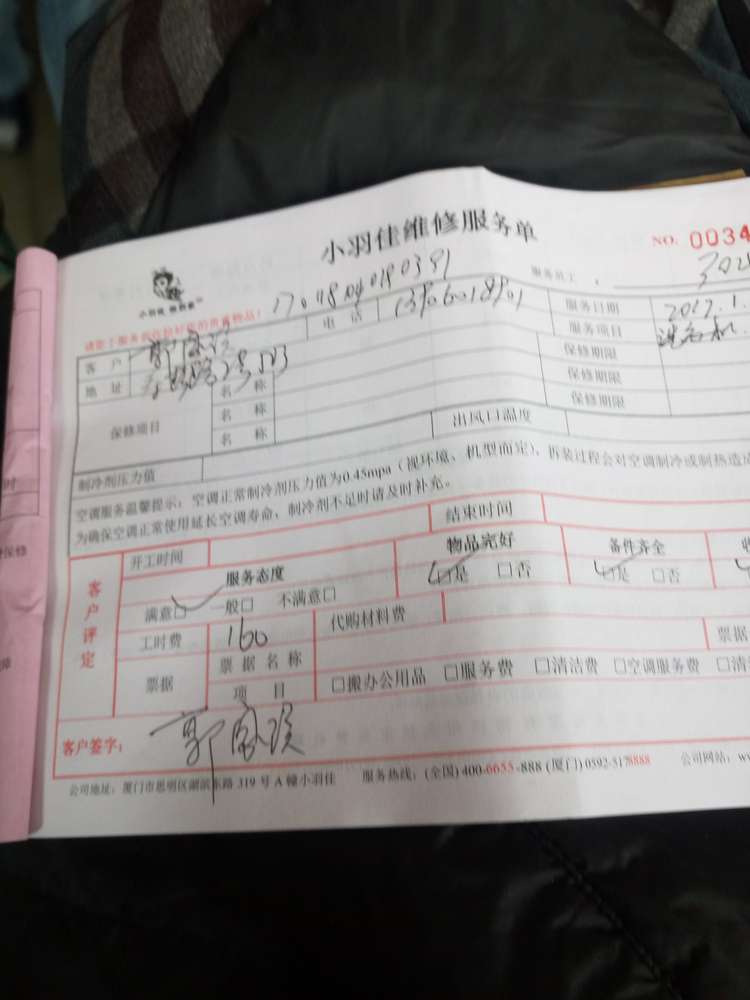 小羽佳维修服务单
NO. 0034
服务员工:
小羽佳
客户 郭 电话 服务日期 2017.1.
地址 服务项目 洗衣机
保修项目 名称 保修期限
名称 保修期限
名称 保修期限
制冷剂压力值 出风口温度
空调服务温馨提示:空调正常制冷剂压力值为0.45mpa(视环境、机型而定),拆装过程会对空调制冷或制热造成
为确保空调正常使用延长空调寿命,制冷剂不足时请及时补充。
客户评定 开工时间 结束时间
服务态度 物品完好 备件齐全
满意□ 一般□ 不满意□ □是 □否 □是 □否
工时费 160 代购材料费
票据 票据名称 票据
项目 □搬办公用品 □服务费 □清洁费 □空调服务费 □清
客户签字: 郭
公司地址:厦门市思明区湖滨东路 319 号 A 幢小羽佳 服务热线:(全国) 400-6655-888 (厦门) 0592-5178888 公司网站: